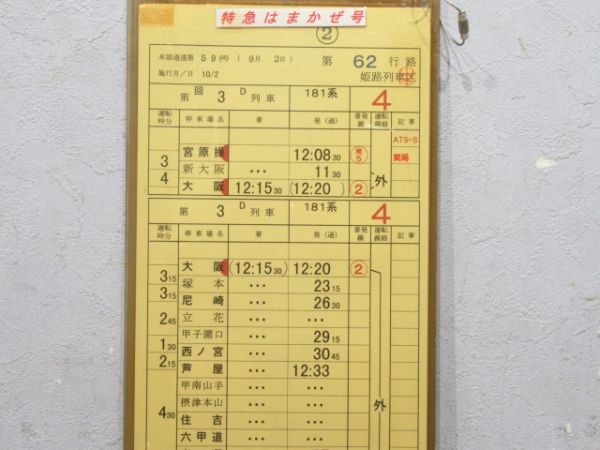 特急はまかぜ号
②
本部通達第 598号 ( 9月 2日) 第 62 行路
施行月/日 10/2 姫路列車区
第 回3D列車 181系 4
運転時分 停車場名 着 発(通) 着発線 運転線路 記事
ATS-S
3 宮原操 12:08 30 南5 開局
4 新大阪 … 11 30 外
大阪 12:15 30 (12:20) ②
第 3D列車 181系 4
運転時分 停車場名 着 発(通) 着発線 運転線路 記事
大阪 (12:15 30) 12:20 ②
3 15 塚本 … 23 15
3 15 尼崎 … 26 30
2 45 立花 … …
甲子園口 … 29 15
1 30 西ノ宮 … 30 45
2 15 芦屋 … 12:33
甲南山手 … …
摂津本山 … … 外
4 30 住吉 … …
六甲道 … …